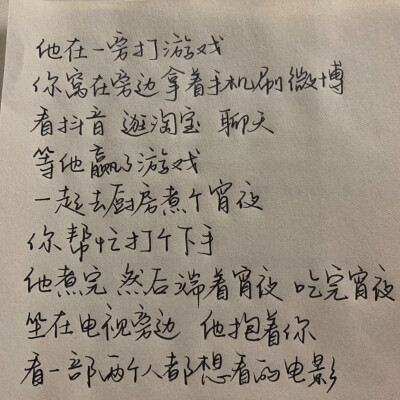 他在一旁打游戏
你窝在旁边拿着手机刷微博
看抖音 逛淘宝 聊天
等他赢了游戏
一起去厨房煮个宵夜
你帮忙打个下手
他煮完 然后端着宵夜 吃完宵夜
坐在电视旁边 他抱着你
看一部两个人都想看的电影